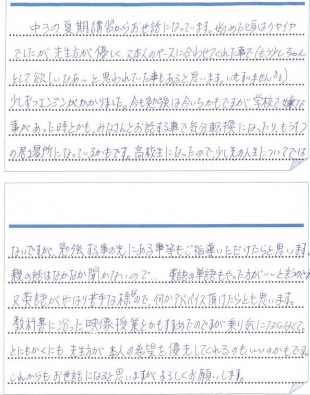 中3の夏期講習からお世話になっています。始めた頃はイヤイヤ
でしたが、先生方が優しく、又本人のペースに合わせてくれた事で(もう少しちゃんと
して欲しいなあ〜と思われていた事もあると思います。いませんが)
少しずつエンジンがかかりました。今も勉強は今いちかもですが学校で嫌な
事があった時とかも、みなさんとお話する事で気分転換になったり、もう1つ
の居場所になっているかもです。高校生になったので少し先の人生についてでは
ないですが、勉強する事の先にある事等もご指導いただけたらと思います。
親の話はなかなか聞かないので… 英語の単語もやった方がいいと思うので
又英語がやはり苦手な様なので何かアドバイス頂けたらとも思います。
教科書に沿った映像授業とかもすすめたのですが乗り気にならなくて。
とにもかくにも先生方が本人の希望を優先してくれるのもいいのかもです。
これからもお世話になると思いますがよろしくお願いします。